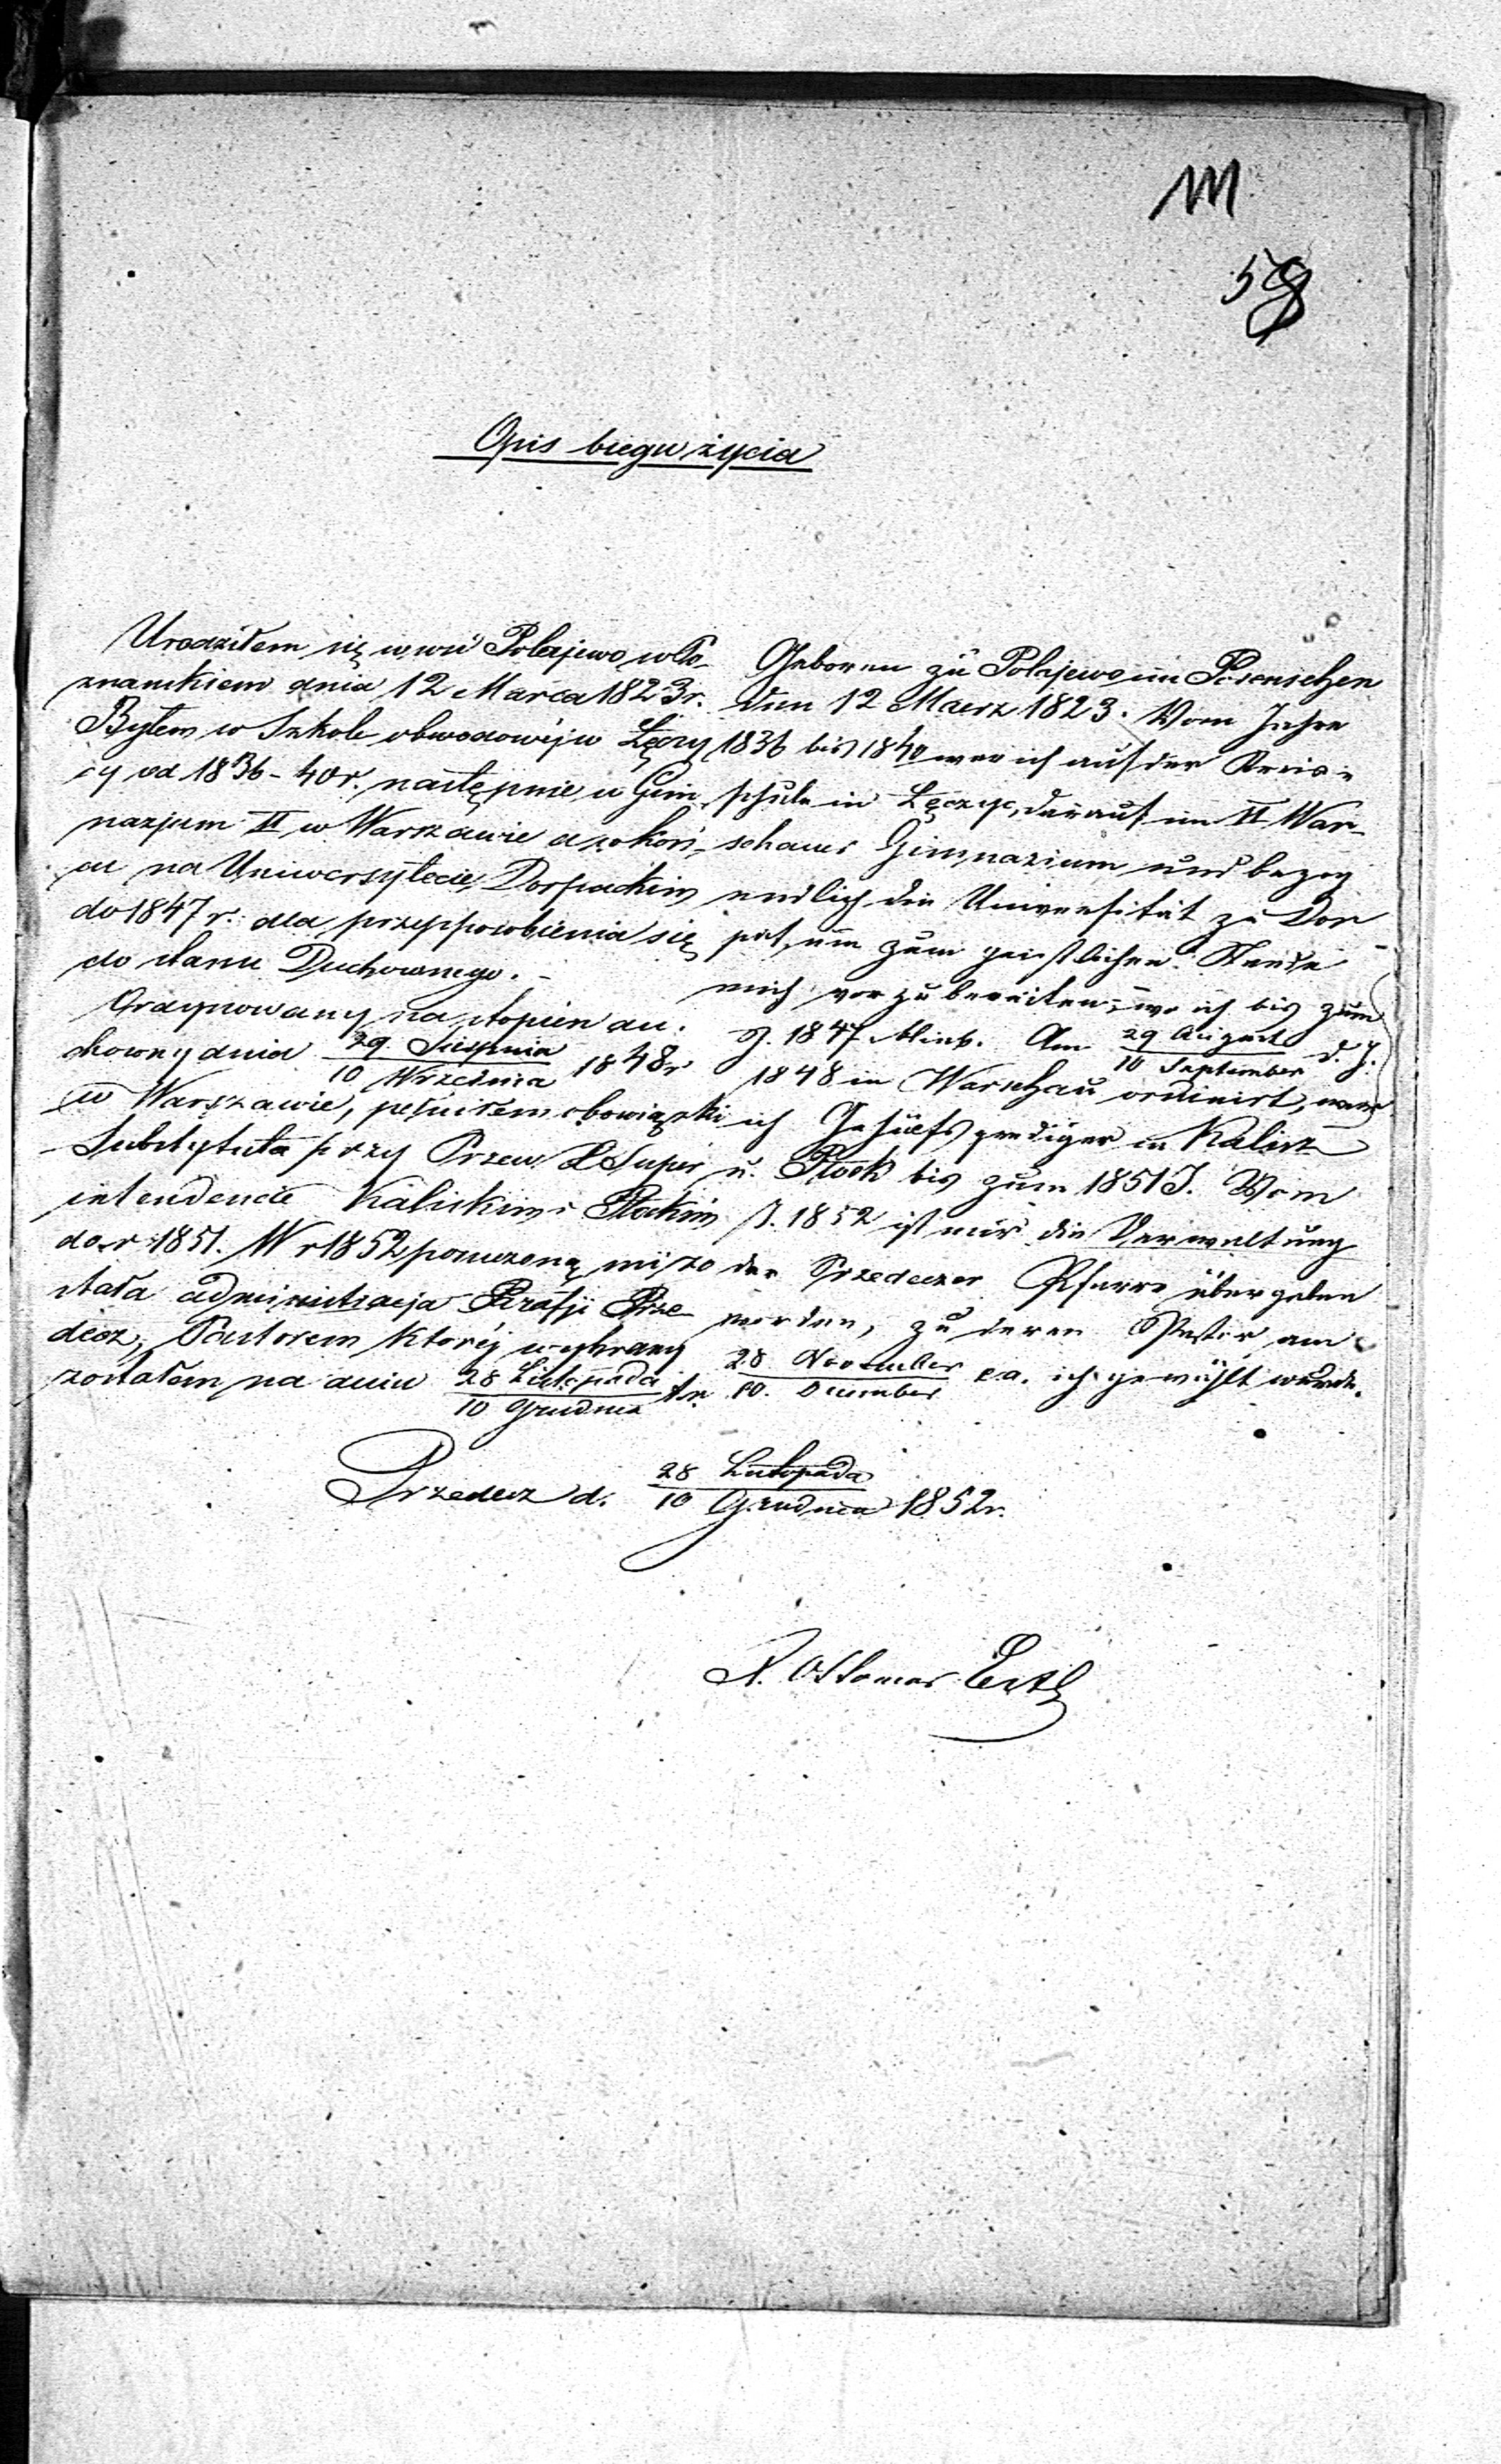 M
58
Opis biegu życia
Urodziłem się w wsi Połajewo w Po-
znańskiem dnia 12 Marca 1823 r.
Byłem w Szkole obwodowéj w Łęczy
cy od 1836-40 r. następnie w Gim
nazjum II w Warszawie a w koń-
cu na Uniwersytecie Dorpackim
do 1847 r. dla przysposobienia się
do stanu Duchownego.-
Ordynowany na stopień du.
chowny dnia 29. Sierpnia / 10 Września 1848 r
w Warszawie, pełniłem obowiązki
Substytuta przy Przew. Super
intendencie Kaliskim i Płockim
do r 1851. W r 1852 poruczoną mi zo
stała administracja Parafji Prze
decz, Pastorem któréj wybrany
zostałem na dniu 28 Listopada / 10 Grudnia t.r.
Geboren zu Polajewo im Posenschen
den 12 Maerz 1823. Vom Jahre
1836 bis 1840 war ich auf der Kreis-
schule in Łęczyc, darauf im II War-
schauer Gimnazium und bezog
endlich die Universität zu Dor
pat, um zum geistlichen Stande
mich vorzubereiten, wo ich bis zum
J. 1847 blieb. Am 29 August / 10 September d. J.
1848 in Warschau ordinirt, war
ich Gehülfsprediger in Kalisz
u. Płock bis zum 1851 J. Vom
J. 1852 ist mir die Verwaltung
der Przedeczer Pfarre übergeben
worden, zu deren Pastor am
28 November / 10. December e.a. ich gewählt wurde.
Przedecz d. 28 Listopada / 10 Grudnia 1852 r.
Ottomar